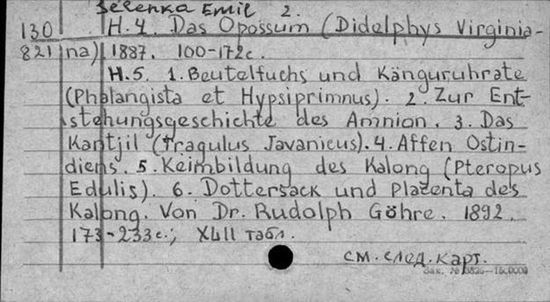 Selenka Emil 2.
130 H. 4. Das Opossum (Didelphys Virginia-
821 na) 1887. 100-172 с.
H. 5. 1. Beutelfuchs und Känguruhrate
(Phalangista et Hypsiprimnus). 2. Zur Ent-
stehungsgeschichte des Amnion. 3. Das
Kantjil (Tragulus Javanicus). 4. Affen Ostin-
diens. 5. Keimbildung des Kalong (Pteropus
Edulis). 6. Dottersack und Plazenta des
Kalong. Von Dr. Rudolph Göhre. 1892.
173-233 с.; XLII табл.
см. след. карт.